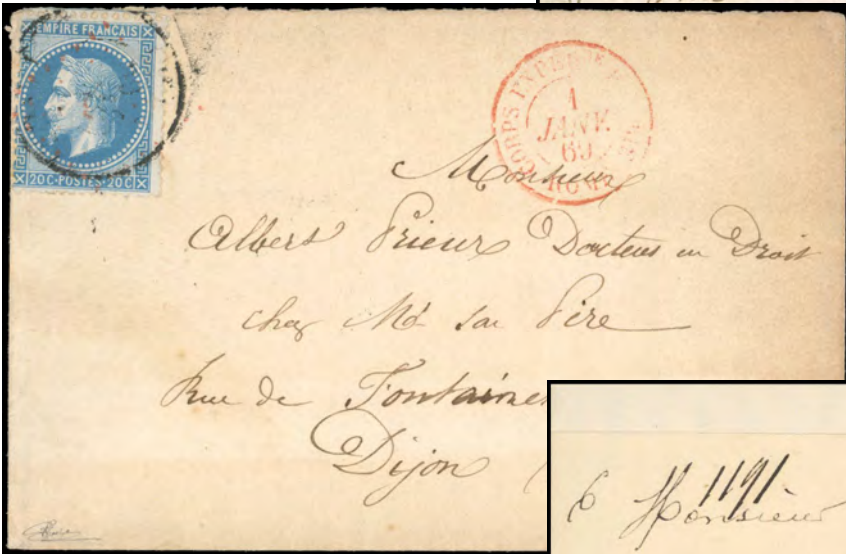 EMPIRE FRANÇAIS
20C·POSTES·20C
CORPS EXPED
1
JANV.
69
ROME
Monsieur
Albert Prieur Docteur en Droit
chez Mr son Père
Rue de
Dijon
1191
Monsieur